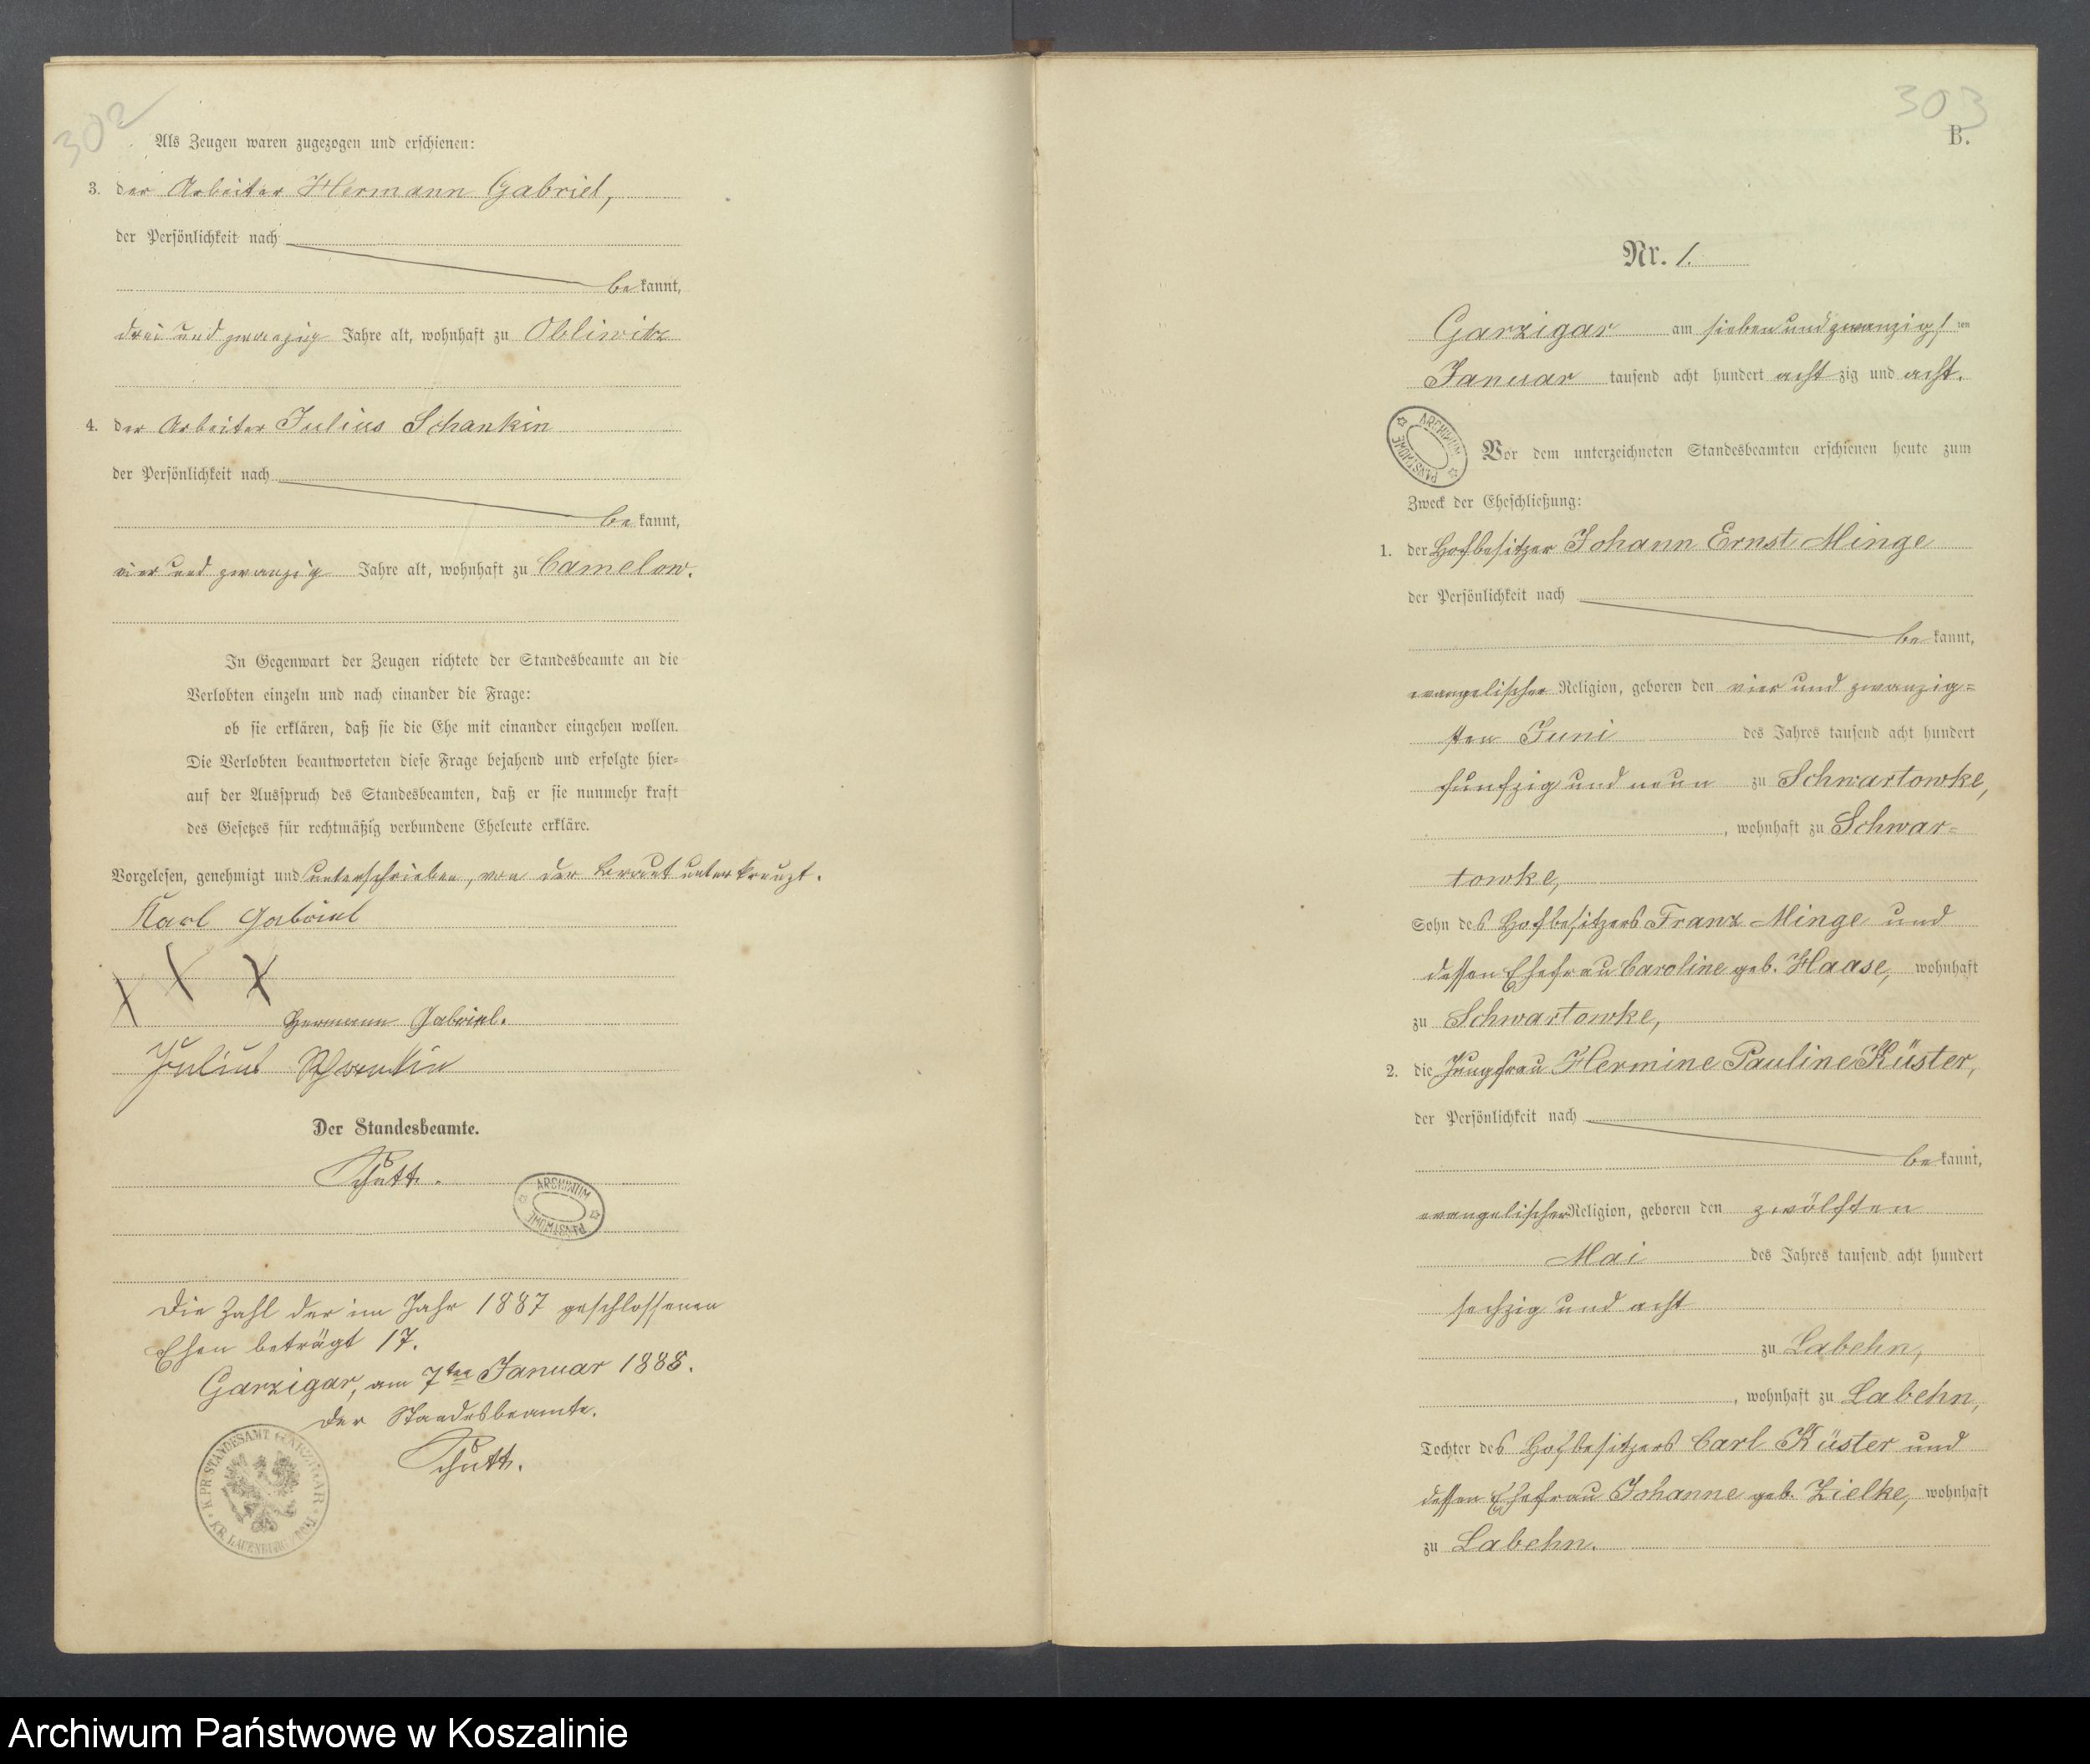 302
Als Zeugen waren zugezogen und erschienen:
3. der Arbeiter Hermann Gabriel,
der Persönlichkeit nach
be kannt,
drei und zwanzig Jahre alt, wohnhaft zu Obliwitz
4. der Arbeiter Julius Schankin
der Persönlichkeit nach
be kannt,
vier und zwanzig Jahre alt, wohnhaft zu Camelow.
In Gegenwart der Zeugen richtete der Standesbeamte an die
Verlobten einzeln und nach einander die Frage:
ob sie erklären, daß sie die Ehe mit einander eingehen wollen.
Die Verlobten beantworteten diese Frage bejahend und erfolgte hier=
auf der Ausspruch des Standesbeamten, daß er sie nunmehr kraft
des Gesetzes für rechtmäßig verbundene Eheleute erkläre.
Vorgelesen, genehmigt und unterschrieben, von der Braut unterkreuzt.
Karl Gabriel
X X X
Hermann Gabriel.
Julius Schankin
Der Standesbeamte.
Schutt.
ARCHIWUM PAŃSTWOWE
Die Zahl der im Jahr 1887 geschlossenen
Ehen beträgt 17.
Garzigar, am 7ten Januar 1888.
Der Standesbeamte.
Schutt.
K. PR. STANDESAMT GARZIGAR
KR. LAUENBURG I/POM.
303
B.
Nr. 1.
Garzigar am siebenundzwanzigsten
Januar tausend acht hundert achtzig und acht.
ARCHIWUM PAŃSTWOWE
Vor dem unterzeichneten Standesbeamten erschienen heute zum
Zweck der Eheschließung:
1. der Hofbesitzer Johann Ernst Minge
der Persönlichkeit nach
be kannt,
evangelischer Religion, geboren den vier und zwanzig=
sten Juni des Jahres tausend acht hundert
fünfzig und neun zu Schwartowke,
, wohnhaft zu Schwar=
towke,
Sohn des Hofbesitzers Franz Minge und
dessen Ehefrau Caroline geb. Haase, wohnhaft
zu Schwartowke,
2. die Jungfrau Hermine Pauline Küster,
der Persönlichkeit nach
be kannt,
evangelischer Religion, geboren den zwölften
Mai des Jahres tausend acht hundert
sechzig und acht
zu Labehn,
, wohnhaft zu Labehn,
Tochter des Hofbesitzers Carl Küster und
dessen Ehefrau Johanne geb. Zielke, wohnhaft
zu Labehn.
Archiwum Państwowe w Koszalinie